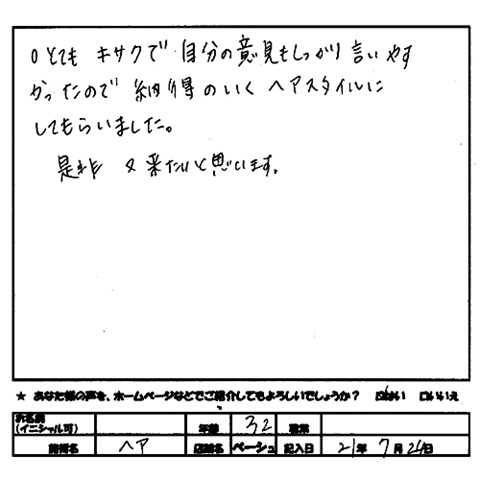 とても キサクで 自分の意見もしっかり言いやす
かったので 納得のいく ヘアスタイルに
してもらいました。
是非 又来たいと思います。
★ あなた様の声を、ホームページなどでご紹介してもよろしいでしょうか？ □はい □いいえ
お名前 (イニシャル可) 年齢 32 職業
施術名 ヘア 店舗名 ページュ 記入日 21年 7月 24日